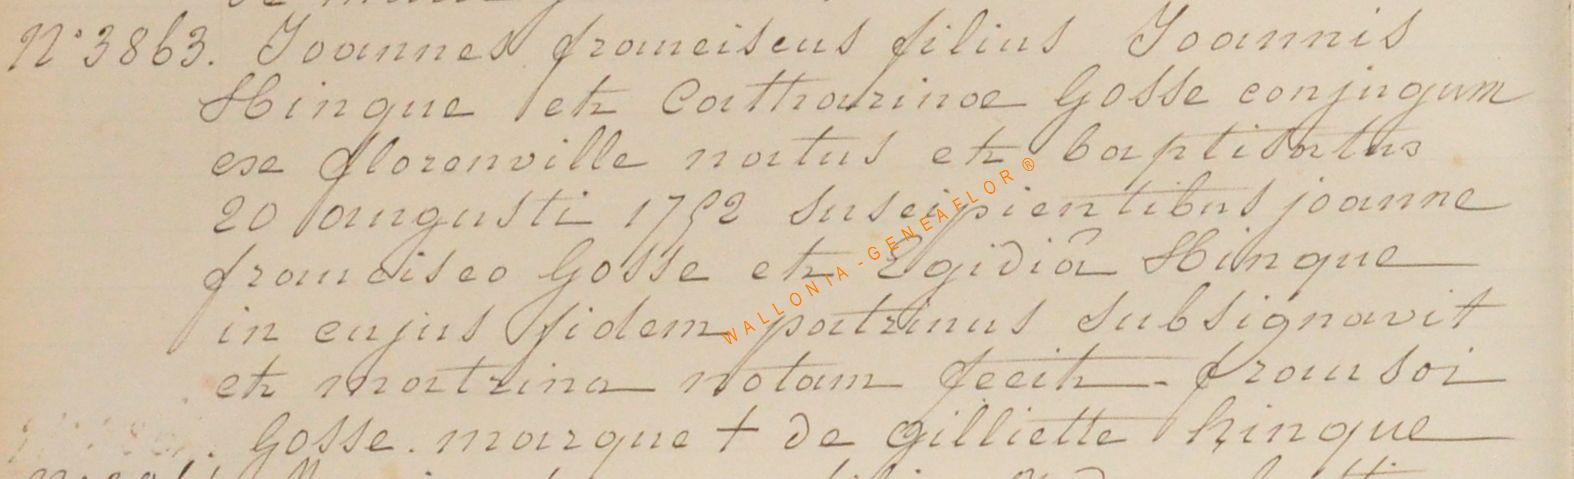 N° 3863. Joannes franciscus filius Joannis
Hinque et Catharinoe Gosse conjugum
ex florenville natus et baptisatus
20 augusti 1752 suscipientibus joanne
francisco Gosse et Egidiâ Hinque
in cujus fidem patrinus subsignavit
et matrina notam fecit - fransoi
Gosse . marque + de gilliette hinque
WALLONIA - GENEAFLOR ®